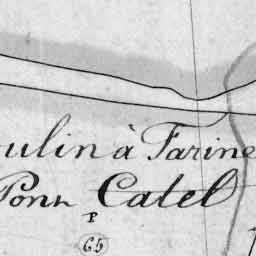 oulin à Farine
Pont Catel
P
65